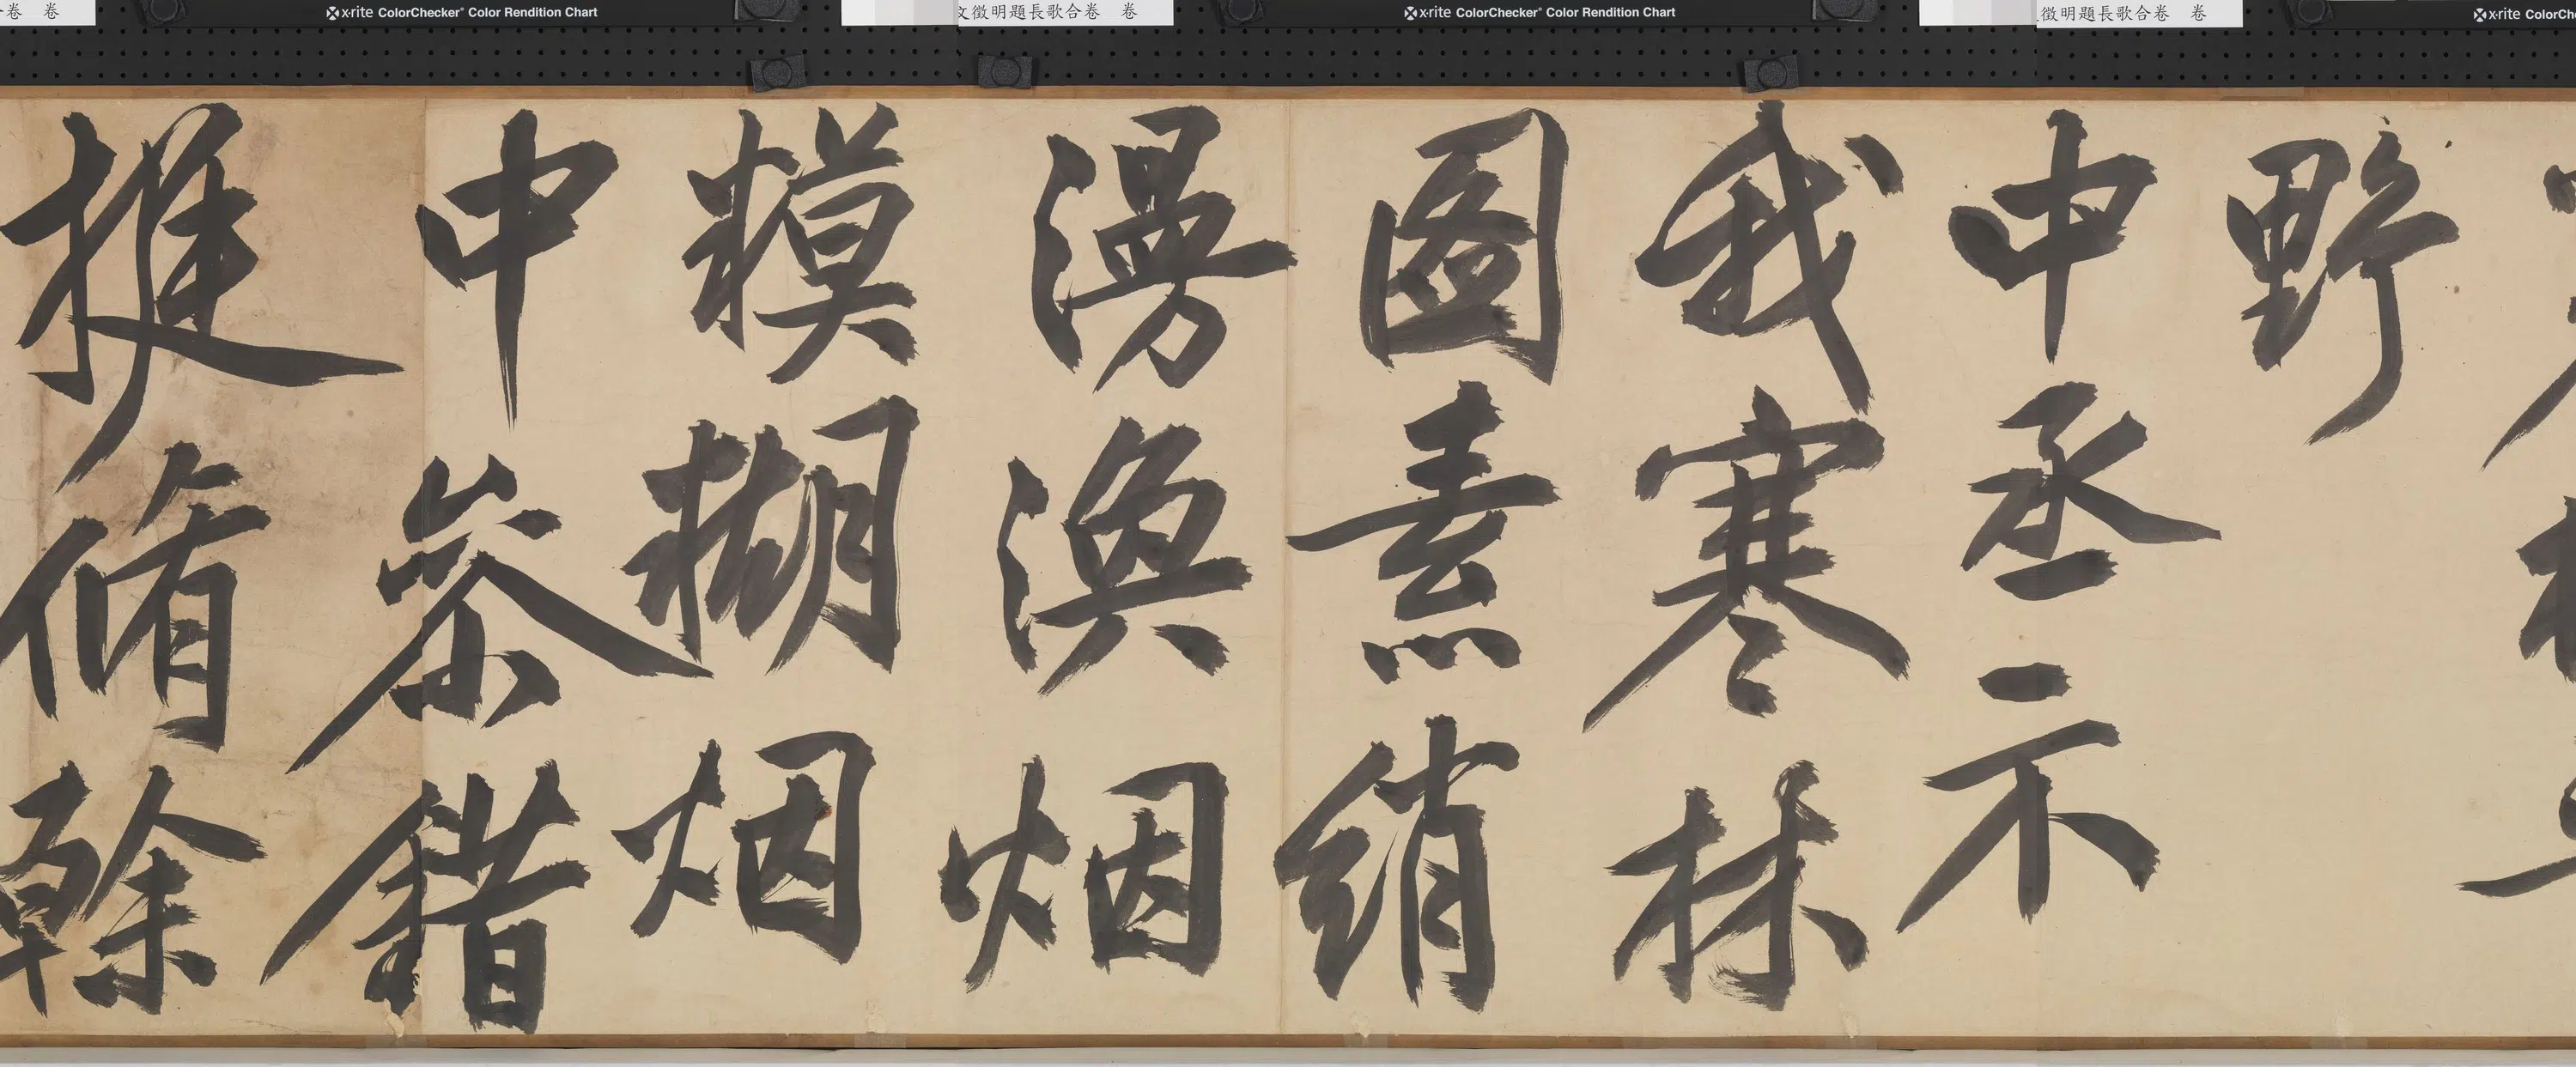 卷 卷
x-rite ColorChecker Color Rendition Chart
徵明題長歌合卷 卷
x-rite ColorChecker Color Rendition Chart
徵明題長歌合卷 卷
x-rite
野
中丞示
我寒林
圖素綃
漫渙烟
糢糊烟
中叅錯
挺脩榦